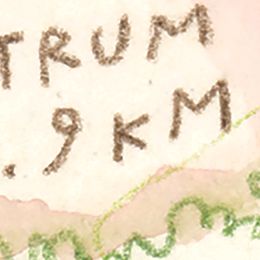 TRUM
.9 KM